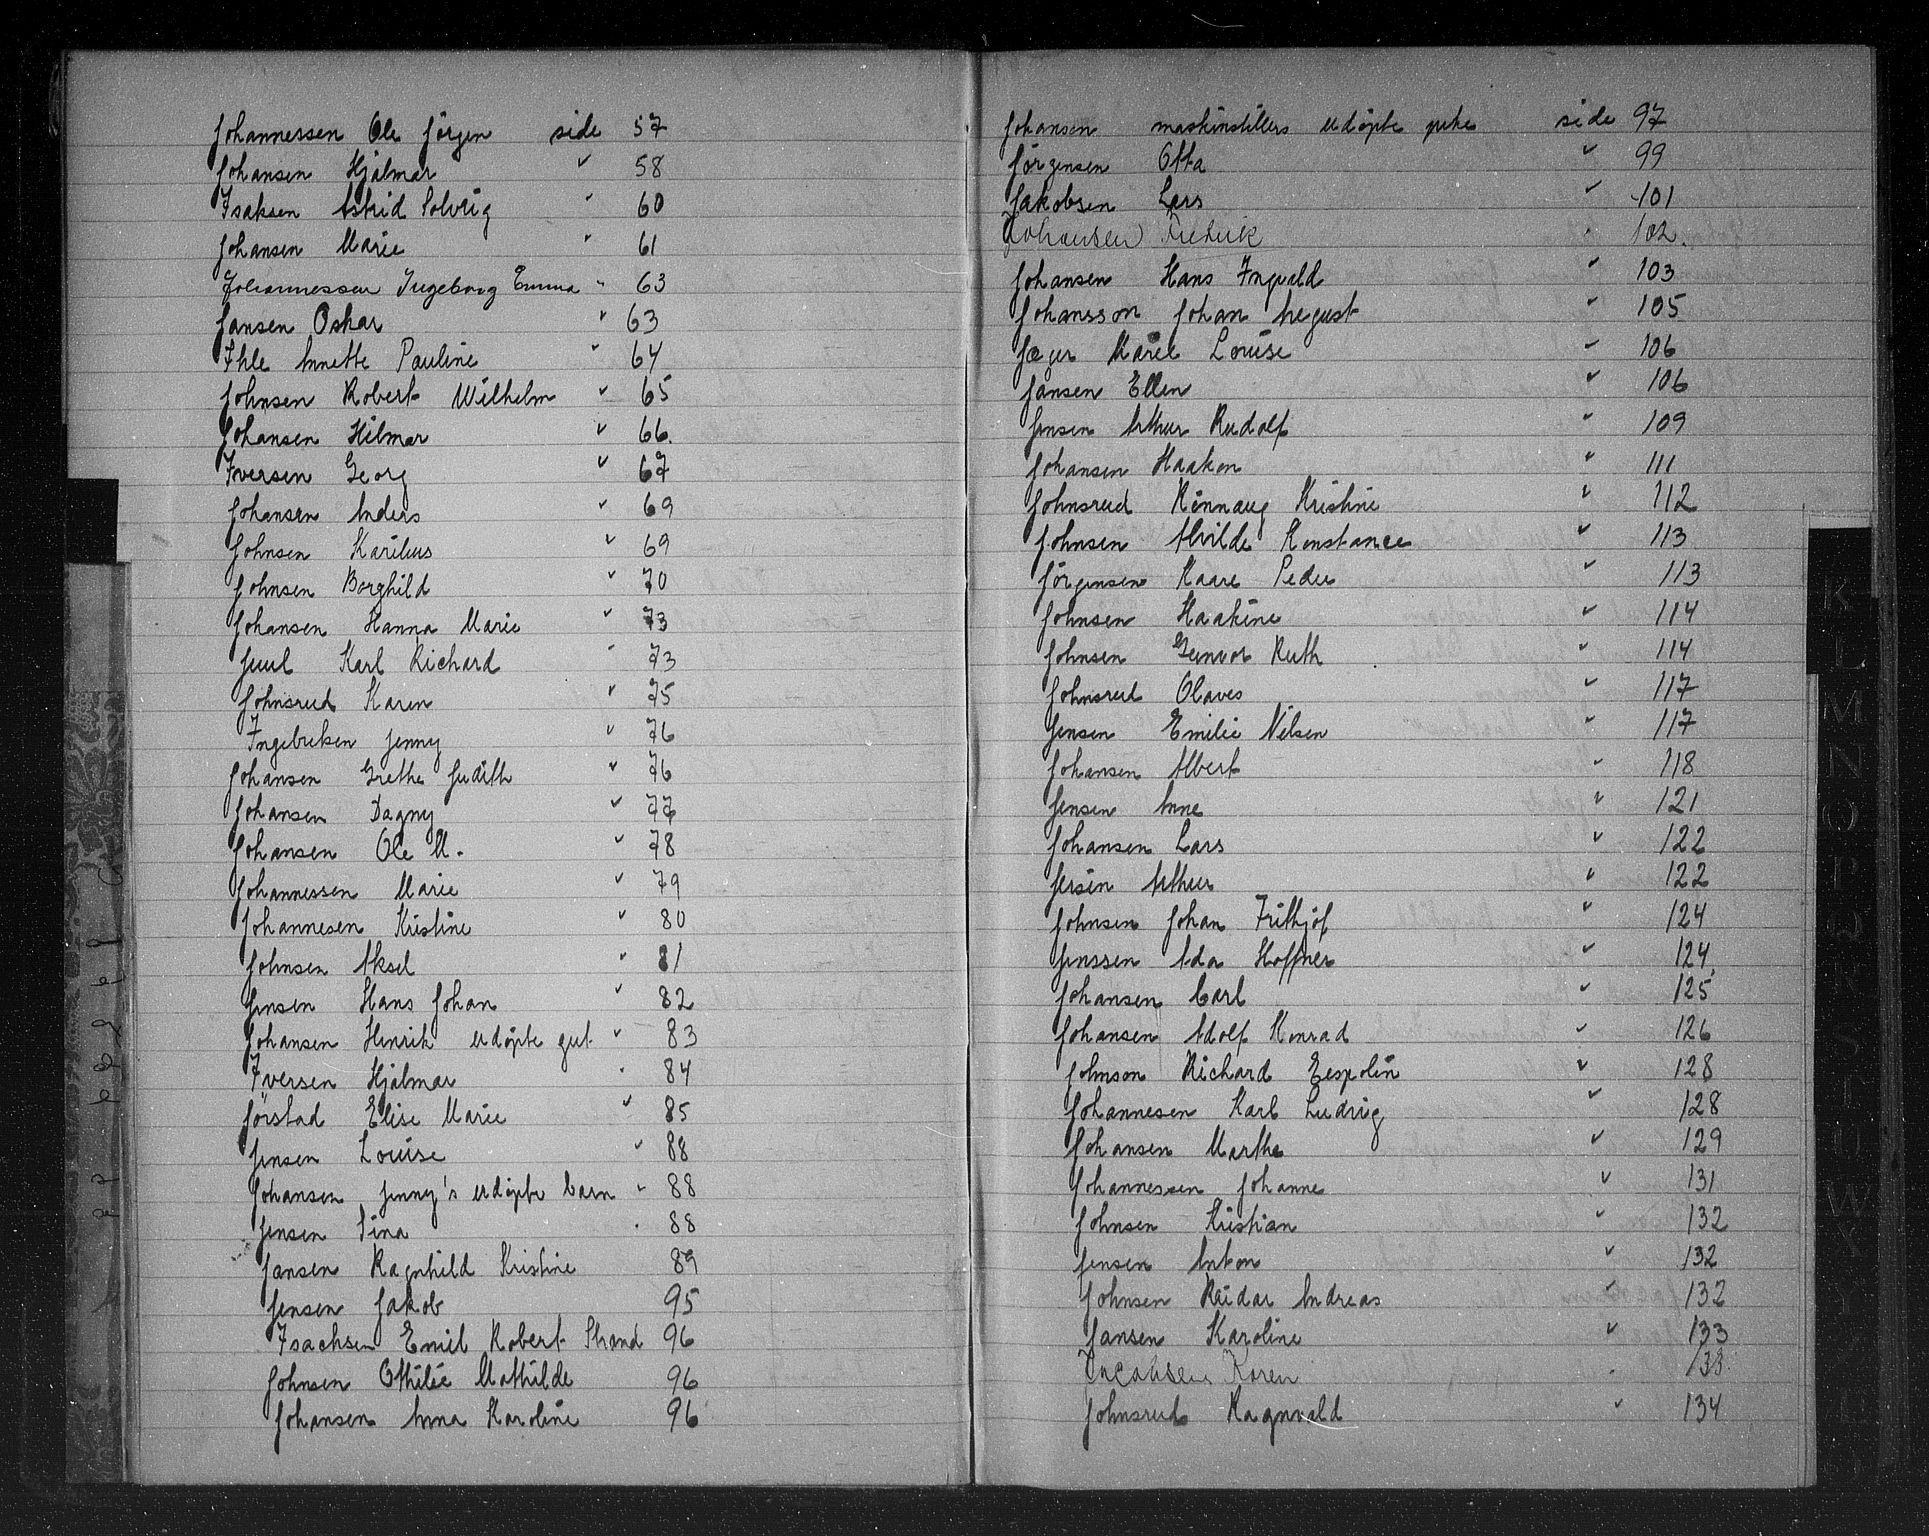 Johannessen Ole Jörgen side 57
Johansen Hjalmar " 58
Isaksen Astrid Solveig " 60
Johansen Marie " 61
Johannessen Ingeborg Emma " 63
Jansen Oskar " 63
Ihle Annette Pauline " 64
Johnsen Robert Wilhelm " 65
Johansen Hilmar " 66.
Iversen Georg " 67
Johansen Anders " 69
Johnsen Karilius " 69
Johnsen Borghild " 70
Johansen Hanna Marie " 73
Juul Karl Richard " 73
Johnsrud Karen " 75
Ingebriksen Jenny " 76
Johansen Grethe Judith " 76
Johansen Dagny " 77
Johansen Ole M. " 78
Johannessen Marie " 79
Johannesen Kristine " 80
Johnsen Aksel " 81
Jensen Hans Johan " 82
Johansen Henrik udöpte gut " 83
Iversen Hjalmar " 84
Jörstad Elise Marie " 85
Jensen Louise " 88
Johansen Jenny's udöpte barn " 88
Jensen Sina " 88
Jansen Ragnhild Kristine 89
Jensen Jakob 95
Isachsen Emil Robert Strand 96
Johnsen Othilie Mathilde 96
Johansen Anna Karoline 96
Johansen maskinstillers udöpte pike side 97
Jörgensen Otta " 99
Jakobsen Lars " 101
Johansen Fredrik " 102.
Johansen Hans Ingvald " 103
Johansson Johan August " 105
Jæger Marie Louise " 106
Jansen Ellen " 106
Jensen Arthur Rudolf " 109
Johansen Haakon " 111
Johnsrud Rönnaug Kristine " 112
Johnsen Alvilde Konstance " 113
Jörgensen Kaare Peder " 113
Johnsen Haakine " 114
Johnsen Gunvor Ruth " 114
Johnsrud Olaves " 117
Jensen Emilie Nilsen " 117
Johansen Albert " 118
Jensen Anne " 121
Johansen Lars " 122
Jensen Arthur " 122
Johnsen Johan Frithjof " 124
Jenssen Ada Hoffner " 124
Johansen Carl " 125
Johansen Adolf Konrad " 126
Johnson Richard Eespolin " 128
Johannesen Karl Ludvig " 128
Johansen Marthe " 129
Johannessen Johanne " 131
Johnsen Kristian " 132
Jensen Anton " 132
Johnsen Reidar Andreas " 132
Jansen Karoline " 133
Jacobsen Karen " 133.
Johnsrud Ragnvald " 134
K L M N O P Q R S T U W Y